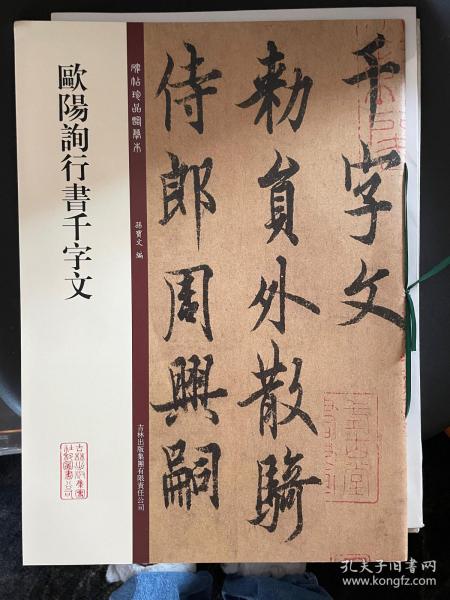 歐陽詢行書千字文
碑帖珍品臨摹本
孫寶文 編
吉林出版集團有限責任公司
千字文
勑員外散騎
侍郎周興嗣
孔夫子旧书网
www.kongfz.com